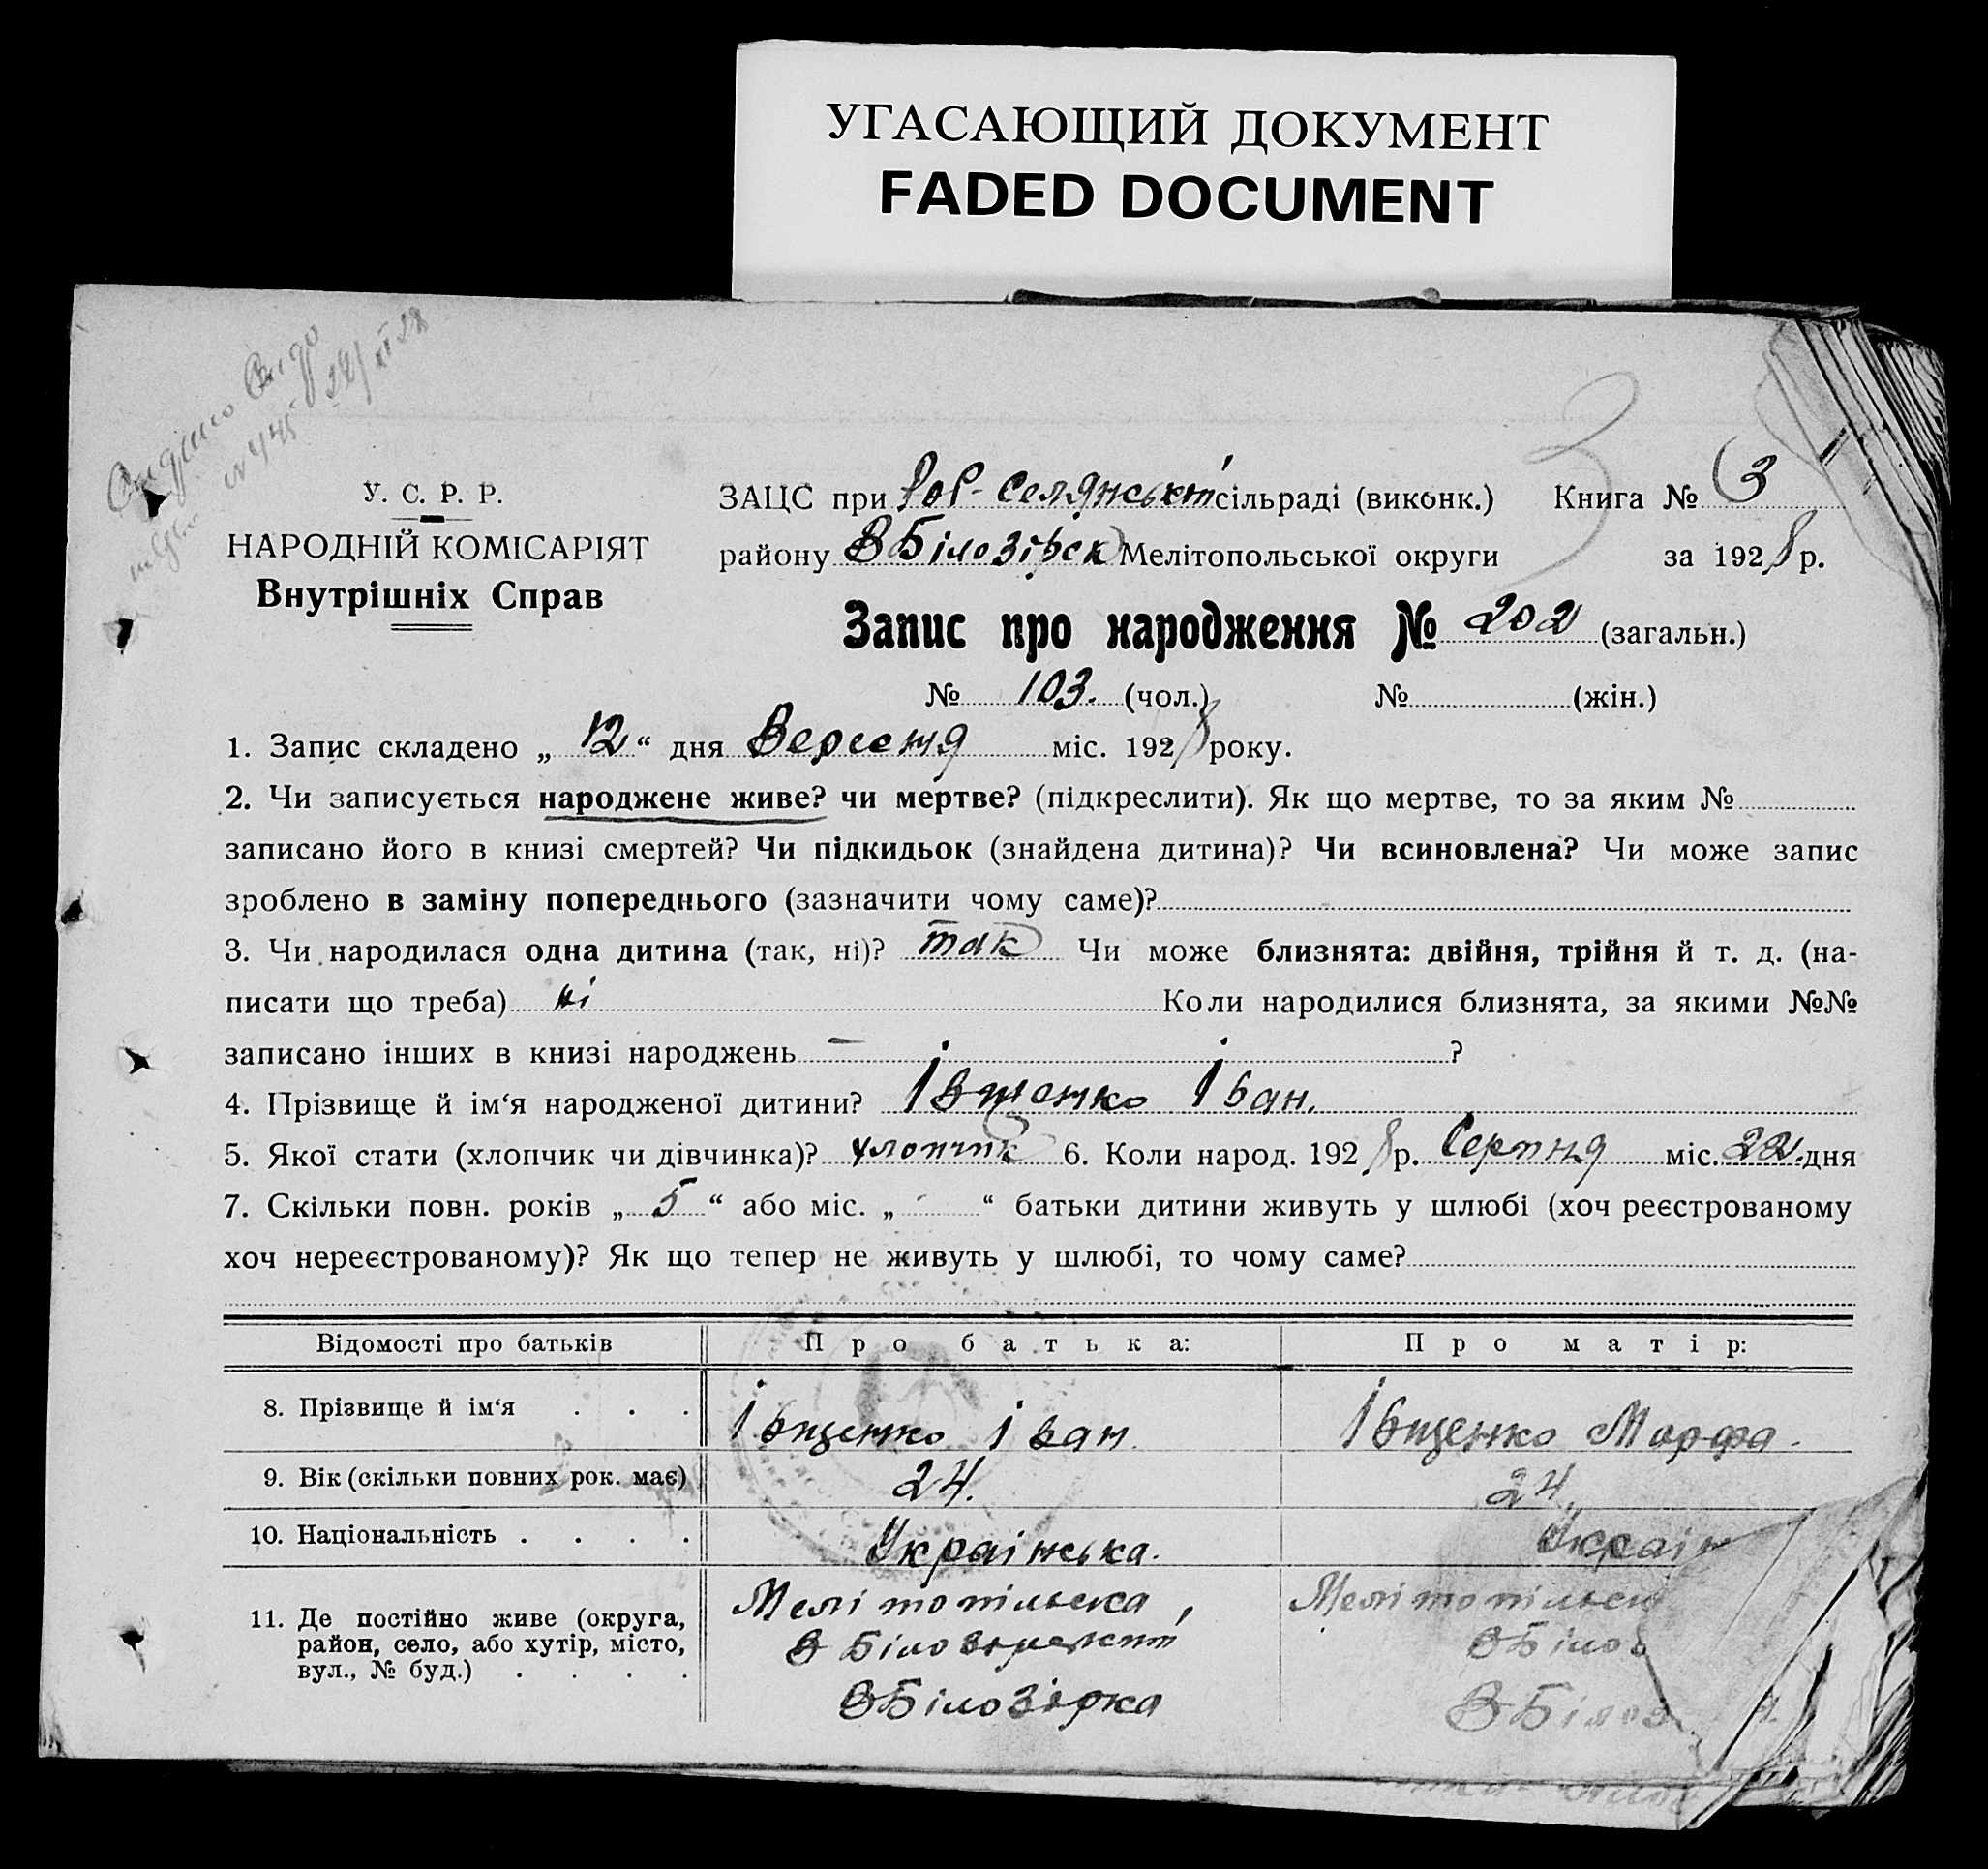 УГАСАЮЩИЙ ДОКУМЕНТ
FADED DOCUMENT
У. С. Р. Р.
НАРОДНІЙ КОМІСАРІЯТ
Внутрішніх Справ
3
ЗАЦС при Роб-Селянській сільраді (виконк.) Книга № 3
району ВБілозірськ Мелітопольської округи за 1928 р.
Запис про народження № 202 (загальн.)
№ 103. (чол.) № (жін.)
1. Запис складено „ 12 “ дня Вересня міс. 1928 року.
2. Чи записується народжене живе? чи мертве? (підкреслити). Як що мертве, то за яким №
записано його в книзі смертей? Чи підкидьок (знайдена дитина)? Чи всиновлена? Чи може запис
зроблено в заміну попереднього (зазначити чому саме)?
3. Чи народилася одна дитина (так, ні)? так Чи може близнята: двійня, трійня й т. д. (на-
писати що треба) ні Коли народилися близнята, за якими №№
записано інших в книзі народжень — ?
4. Прізвище й ім‘я народженої дитини? Івщенко Іван.
5. Якої стати (хлопчик чи дівчинка)? хлопчик 6. Коли народ. 1928 р. Серпня міс. 22. дня
7. Скільки повн. років „ 5 “ або міс. „ “ батьки дитини живуть у шлюбі (хоч реєстрованому
хоч нереєстрованому)? Як що тепер не живуть у шлюбі, то чому саме?
Відомості про батьків Про батька: Про матір:
8. Прізвище й ім‘я . . . Івщенко Іван. Івщенко Марфа.
9. Вік (скільки повних рок. має) 24. 24.
10. Національність . . . . Українська. Україн
11. Де постійно живе (округа, Мелітопільська, Мелітопільськ
район, село, або хутір, місто, ВБілов
вул., № буд.) . . . . ВБілозірка ВБілоз